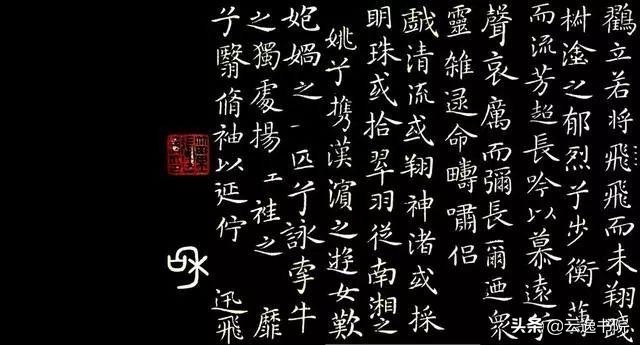 鸛立若將飛飛而未翔踐
椒塗之郁烈兮步衡薄
而流芳超長吟以慕遠兮
聲哀厲而彌長爾迺衆
靈雜逯命疇嘯侶
戲清流或翔神渚或採
明珠或拾翠羽從南湘之
姚兮攜漢濱之遊女歎
媧之一匹兮詠牽牛
之獨處揚袿之靡
兮翳脩袖以延佇迅飛
头条@云逸书院